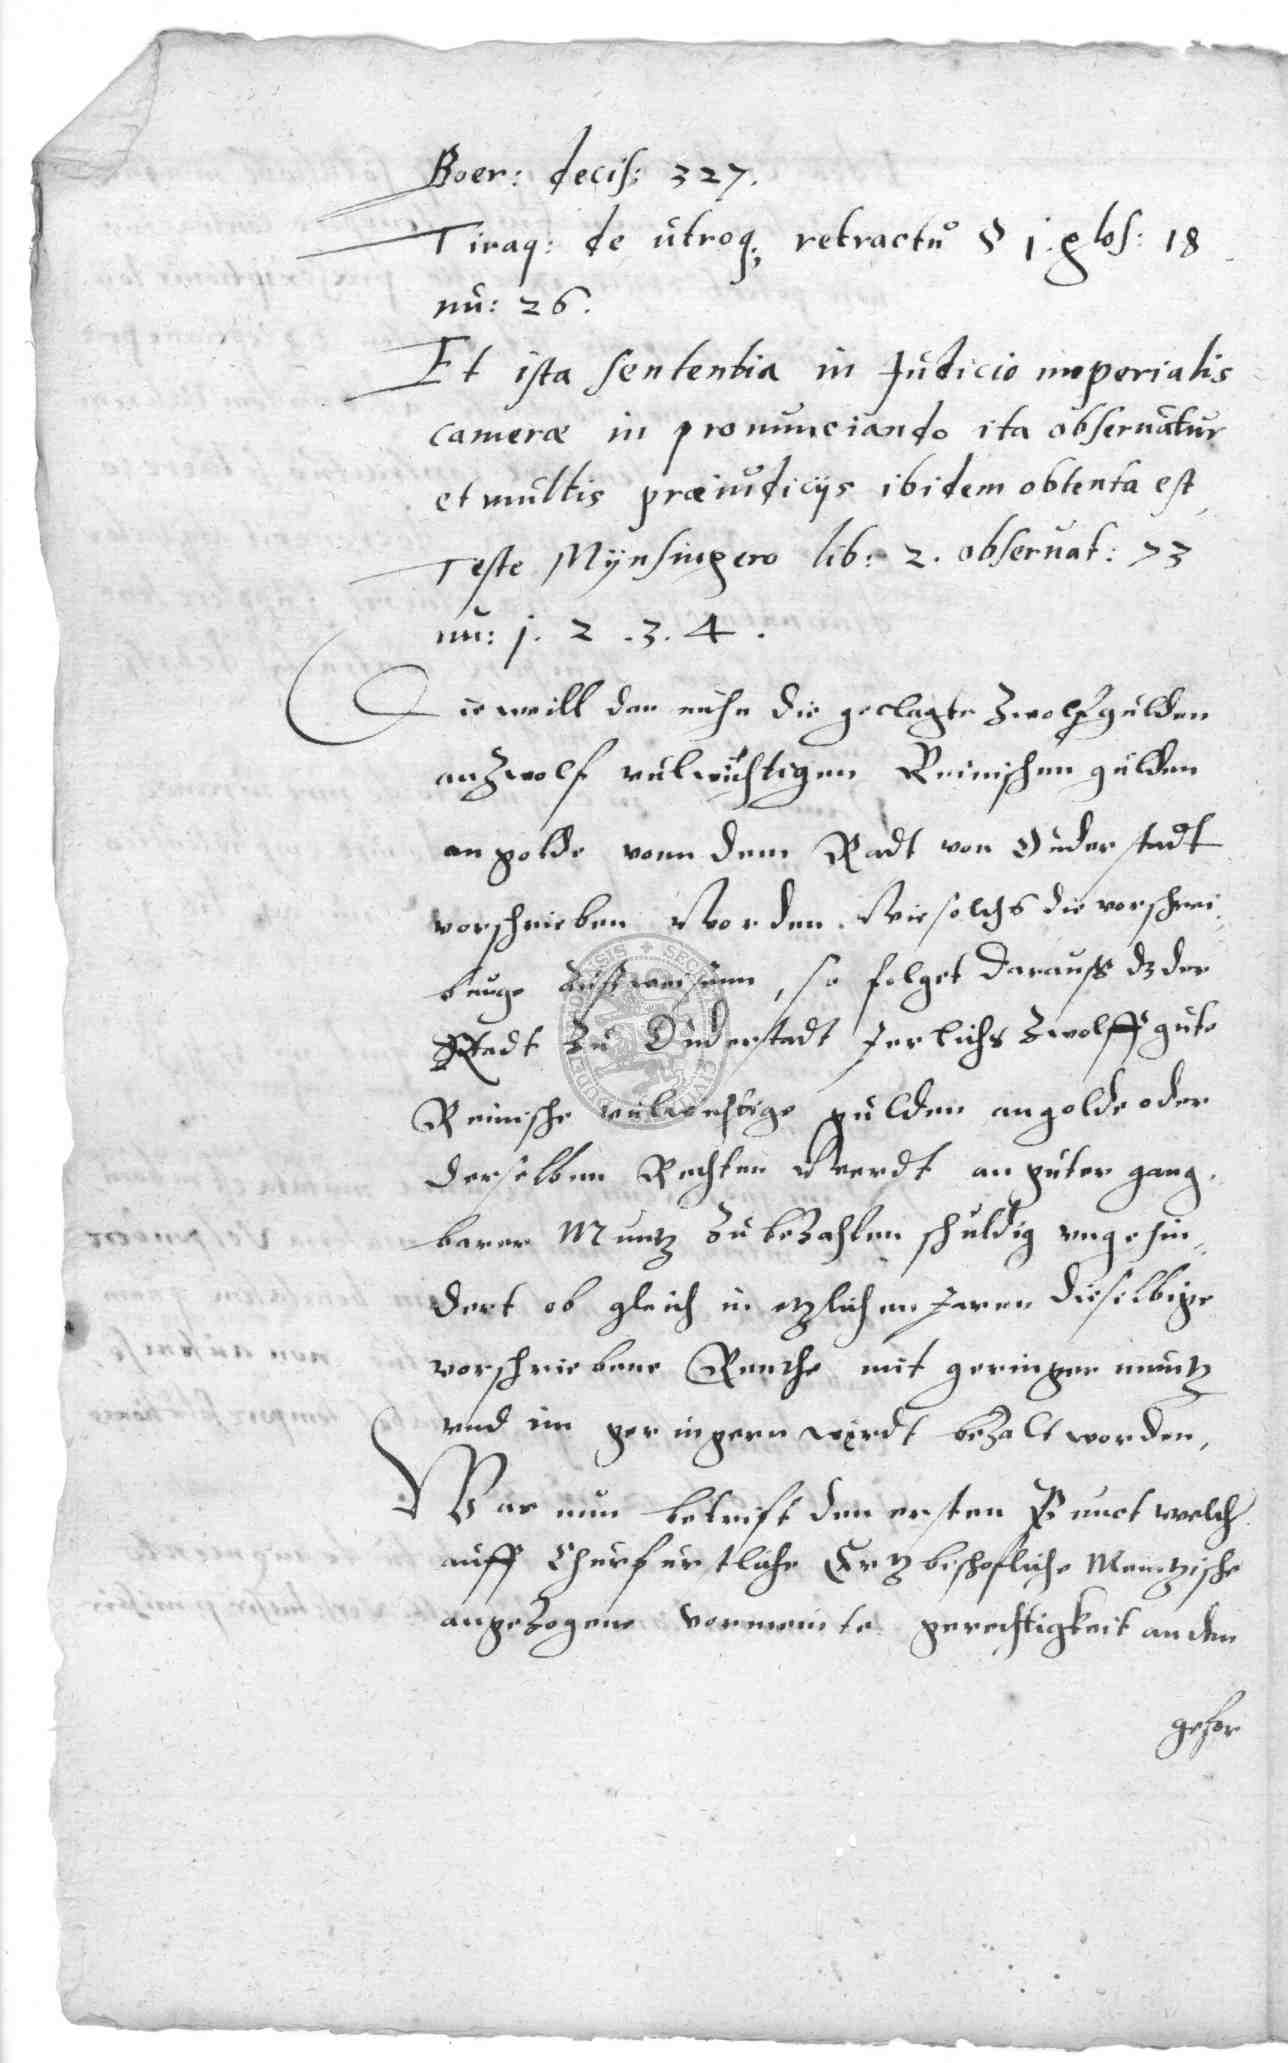 Boer: decis: 327.
Tiraq: de utroq; retractu § j. glos: 18
nu: 26.
Et ista sententia in Judicio imperialis
cameræ in pronunciando ita obseruatur
et multis præiudicijs ibidem obtenta est
Teste Mÿnsingero lib: 2. obseruat: 73
nu: j. 2. 3. 4.
Dieweill dan nuhn die geclagte Zwolf gulden
an Zwolf vulwichtigen Reinischen gulden
an golde vonn dem Radt von Duderstadt
vorschrieben worden. Wie solchs die vorschrei
bunge, so folget darauss dz der
Radt zu Duderstadt Jerlichs Zwolff gute
Reinische vulwichtige gulden an golde oder
derselben Rechten Werdt an guter gang,
barer Muntz zu beZahlen schuldig vngehin,
dert ob gleich in etzlichen Jaren dieselbige
vorschriebene Renthe mit geringer muntz
vnd im geringern wirdt beZalt worden,
Was nun betrifft den ersten Punct welch
auff Churfurstliche Ertzbischofliche Mentzische
angeZogene vermeinte gerechtigkeit an den
gehor
SECR CIVITATIS